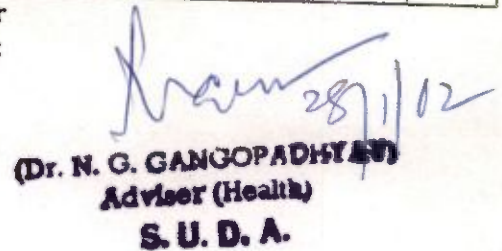 r
28/1/02
(Dr. N. G. GANGOPADHYAY)
Adviser (Health)
S. U. D. A.